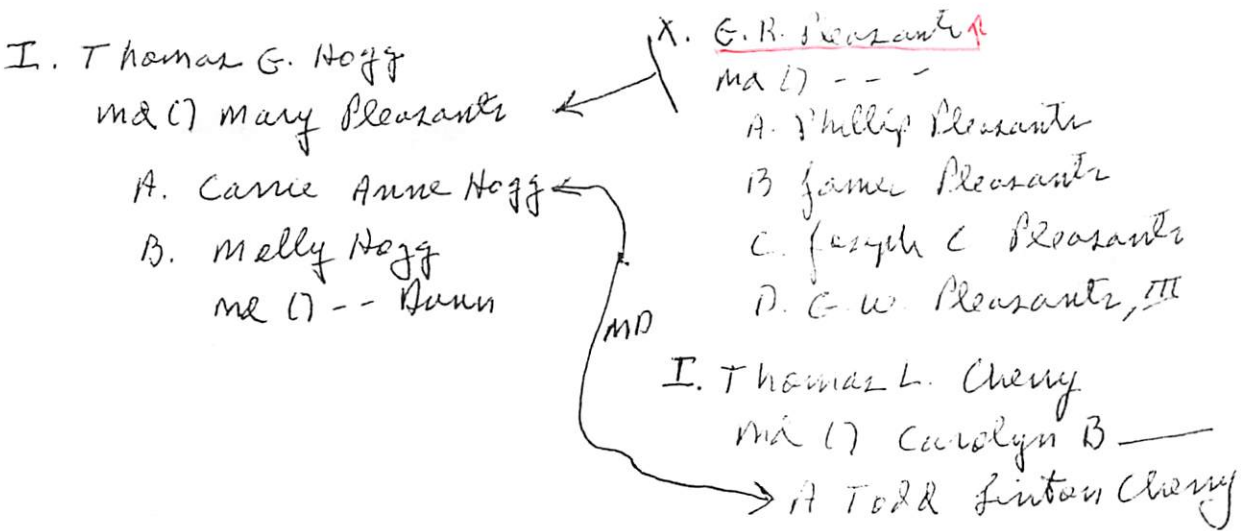 I. Thomas G. Hogg
md () Mary Pleasants
A. Carrie Anne Hogg
B. Molly Hogg
md () -- Dunn
X. G.R. Pleasants
md () - - -
A. Phillip Pleasants
B James Pleasants
C. Joseph C Pleasants
D. G.W. Pleasants, III
MD
I. Thomas L. Cherry
md () Carolyn B —
A Todd Linton Cherry